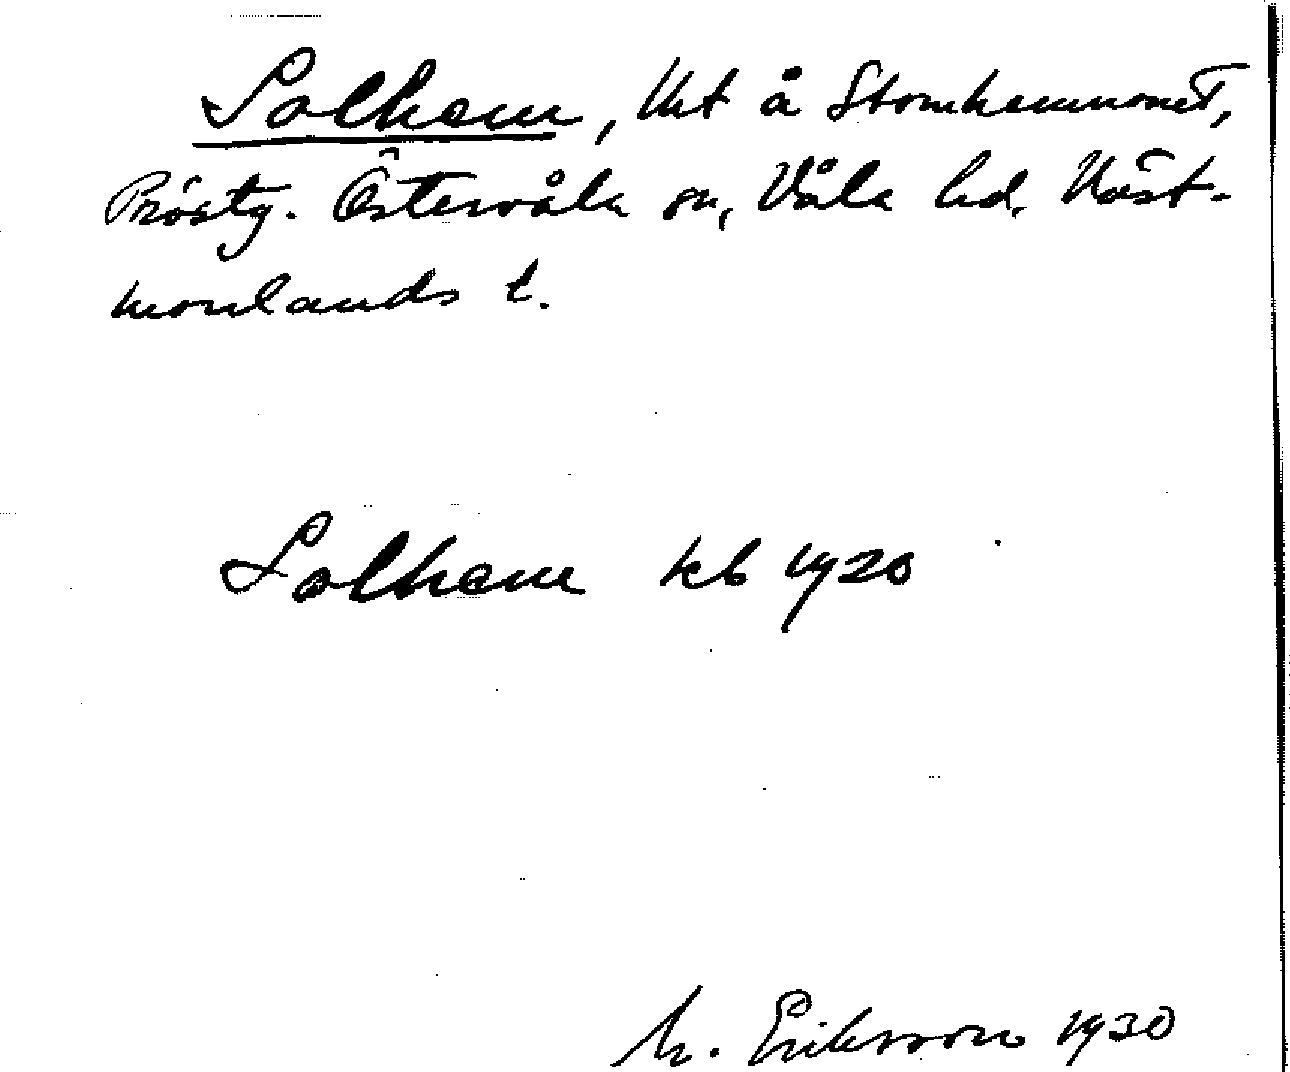 Solhem, lht å Stomhemmanet,
Prästg. Östervåla sn, Våla hd, Väst-
manlands l.
Solhem kb 1920
M. Eriksson 1930